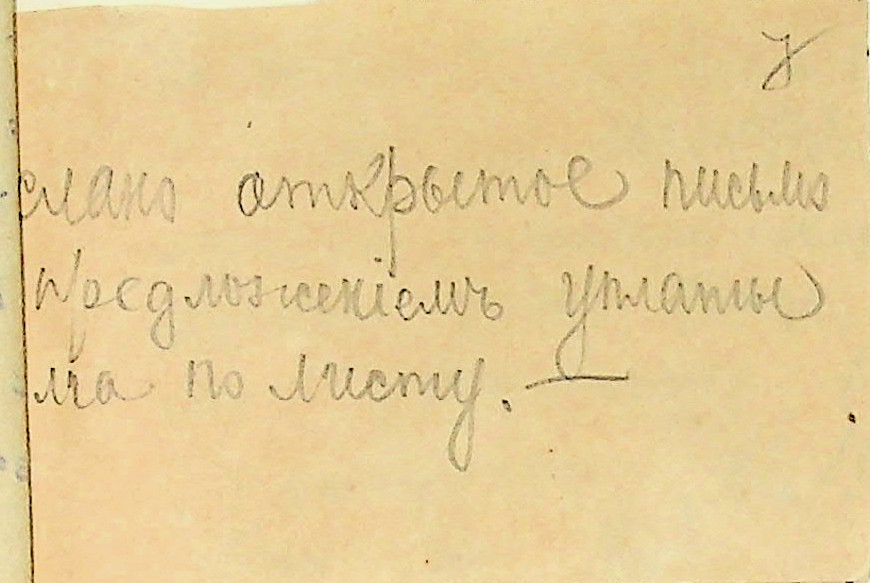 слано открытое письмо
предложеніемъ уплаты
ма по листу. —